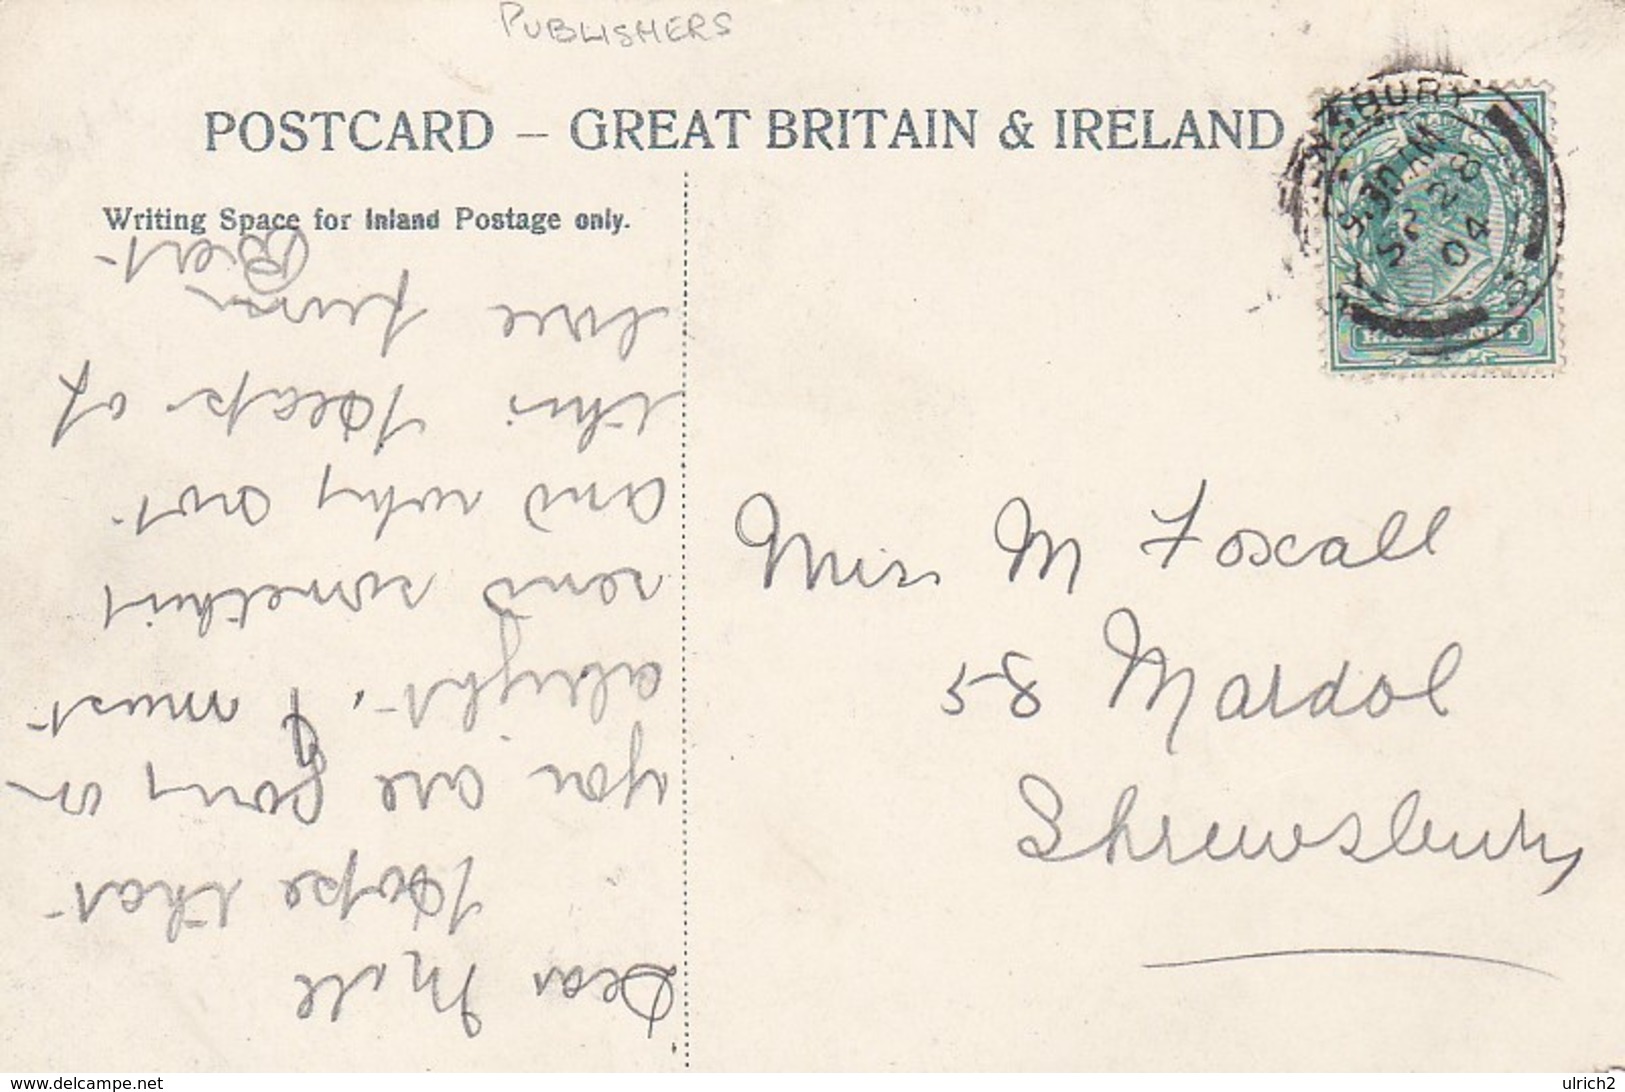 PUBLISHERS
POSTCARD – GREAT BRITAIN & IRELAND
Writing Space for Inland Postage only.
Dear Moll
Hope that
you are going on
alright, I must
send somethin
and why not
this Heaps of
love from
Bert
Miss M Foxall
58 Mardol
Shrewsbury
9.30 PM
04
www.delcampe.net
ulrich2